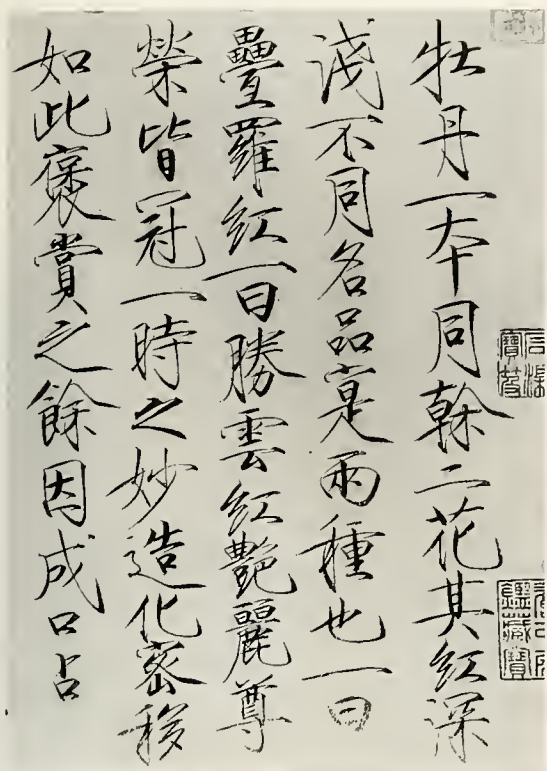 牡丹一本同幹二花其紅深
淺不同名品寔兩種也一曰
疊羅紅一曰勝雲紅艷麗尊
榮皆冠一時之妙造化密移
如此褒賞之餘因成口占